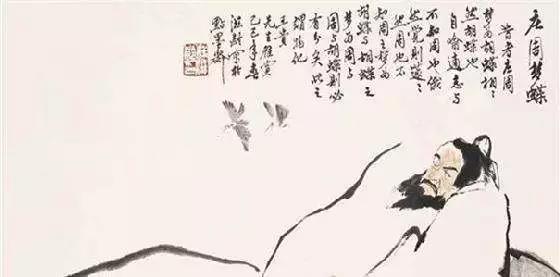 庄周梦蝶
昔者庄周
梦为胡蝶栩〻
然胡蝶也
自喻适志与
不知周也俄
然觉则蘧〻
然周也不
知周之梦为
胡蝶与胡蝶之
梦为周与
周与胡蝶则必
有分矣此之
谓物化
先生雅
己巳年